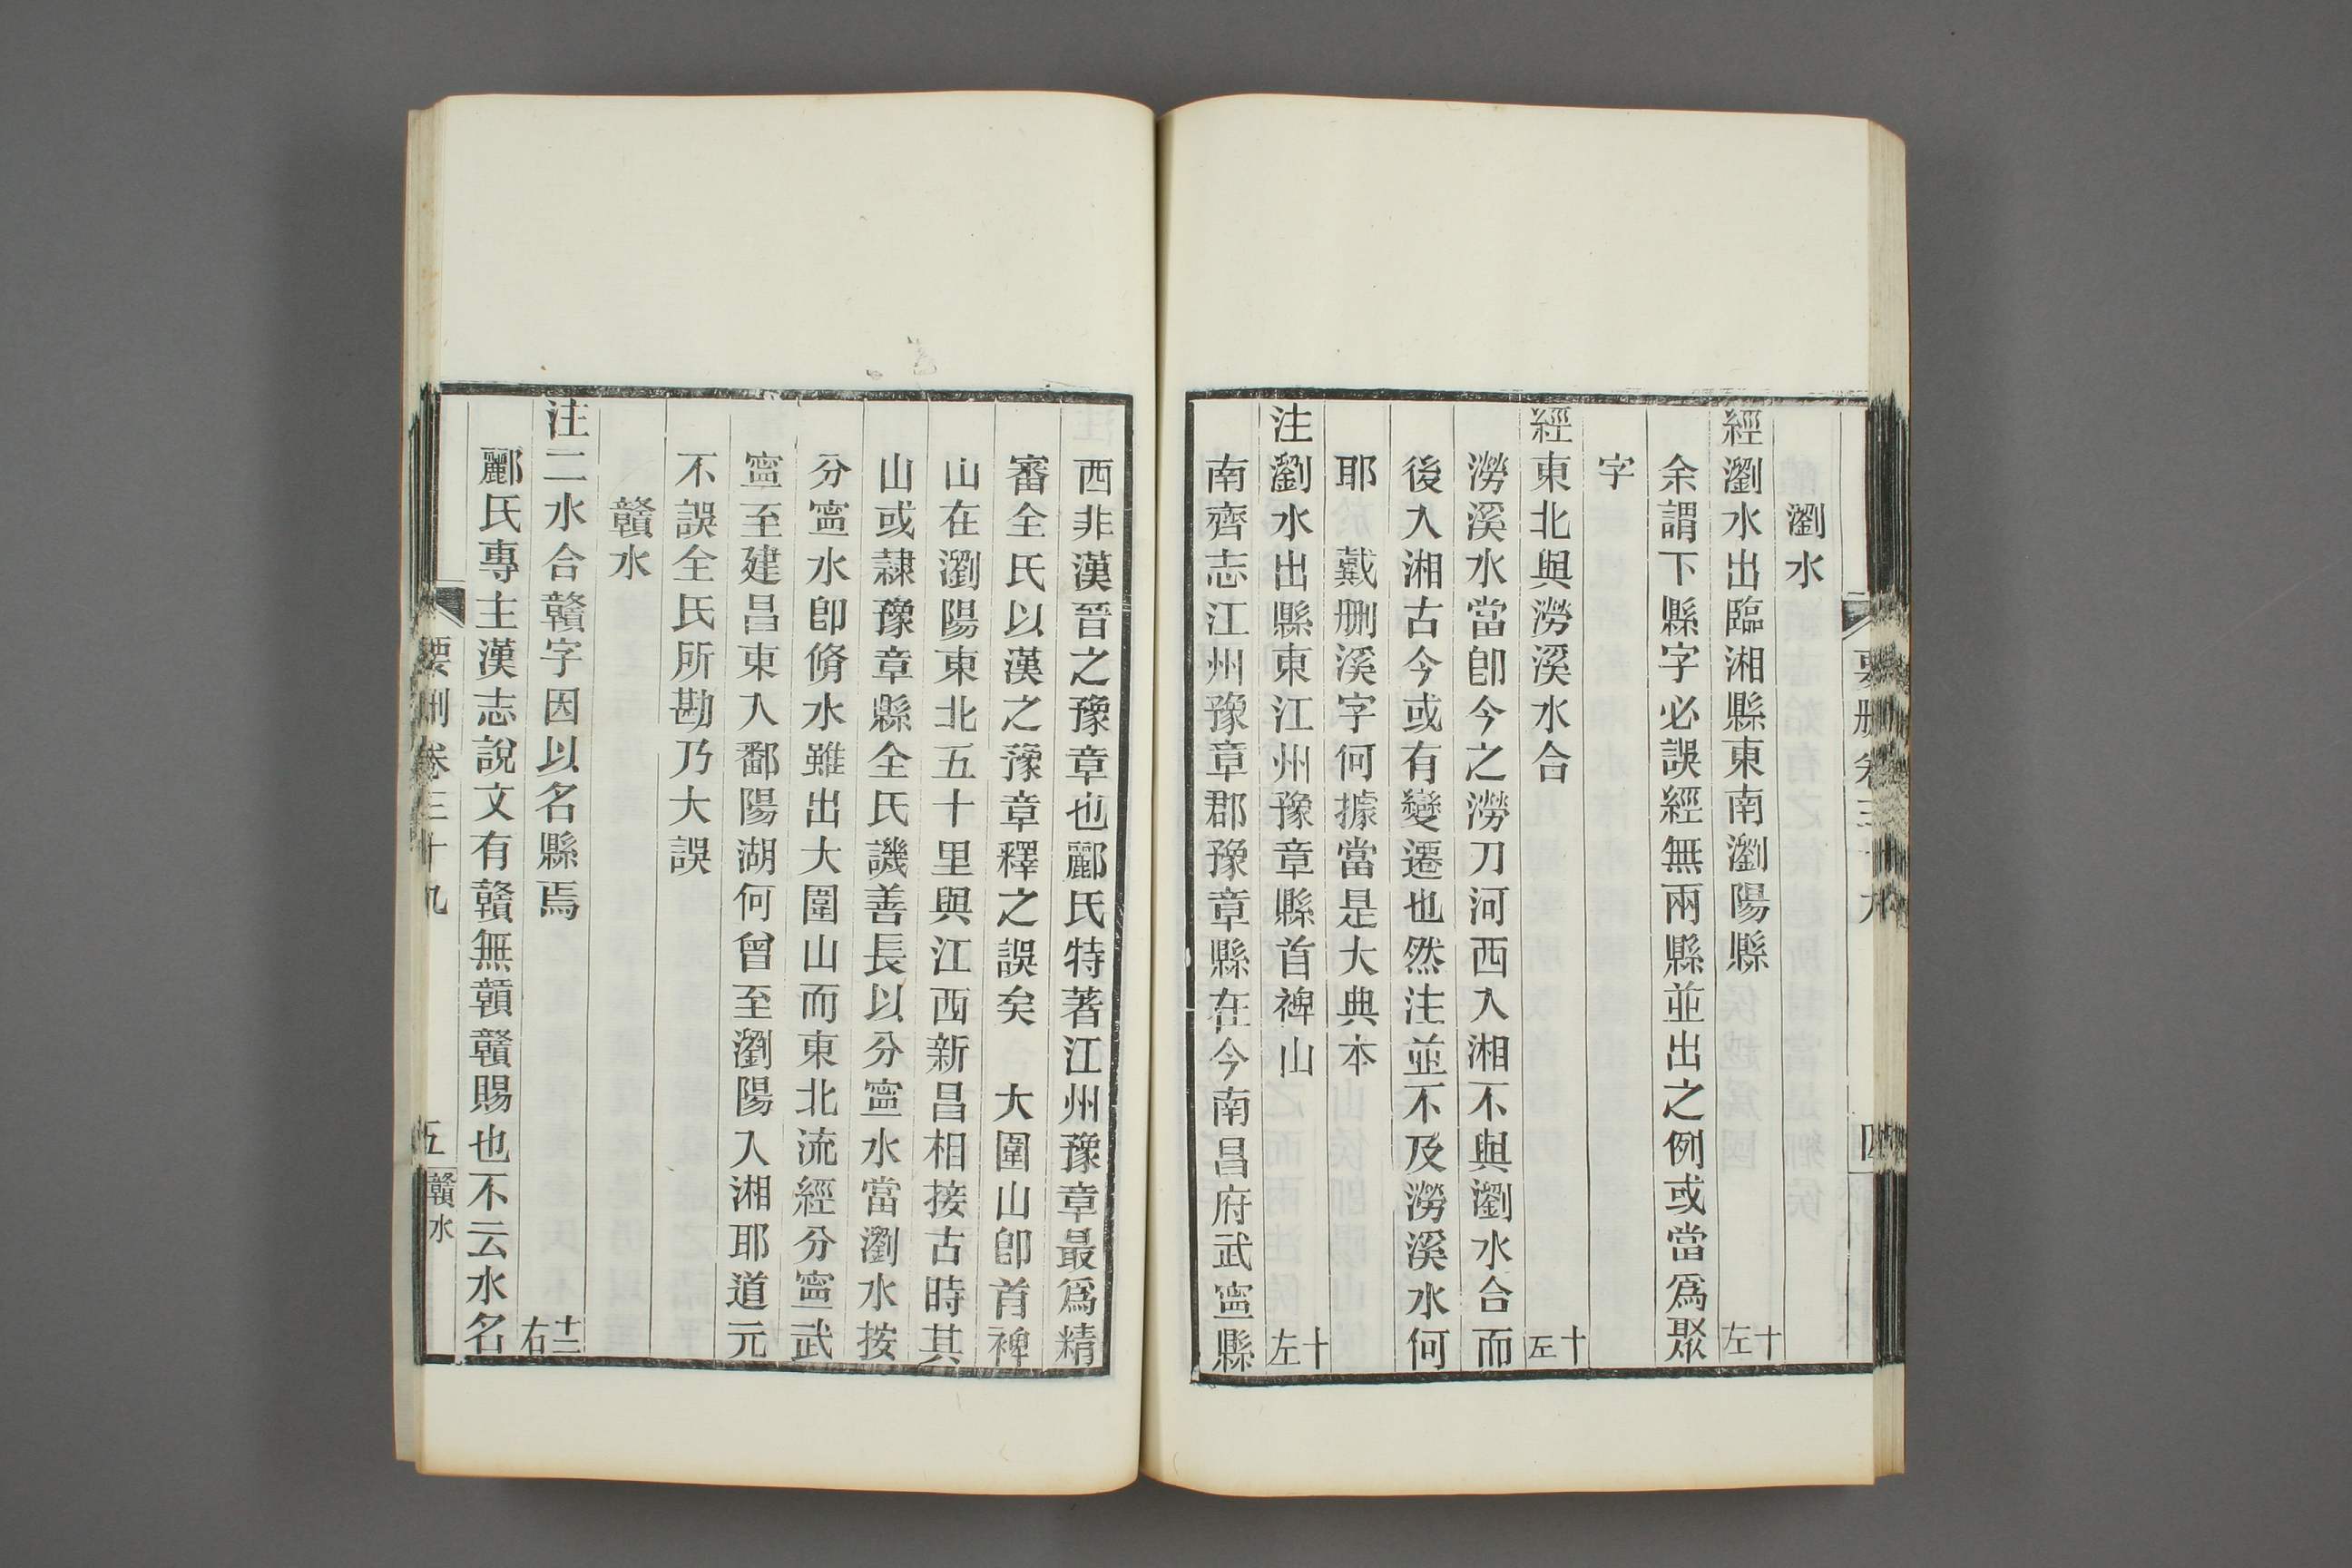 瀏水
經瀏水出臨湘縣東南瀏陽縣 十左
余謂下縣字必誤經無兩縣並出之例或當爲聚
字
經東北與澇溪水合 十左
澇溪水當卽今之澇刀河西入湘不與瀏水合而
後入湘古今或有變遷也然注並不及澇溪水何
耶 戴刪溪字何據當是大典本
注瀏水出縣東江州豫章縣首裨山 十左
南齊志江州豫章郡豫章縣在今南昌府武寧縣
西非漢晉之豫章也酈氏特著江州豫章最爲精
審全氏以漢之豫章釋之誤矣 大圍山卽首裨
山在瀏陽東北五十里與江西新昌相接古時其
山或隷豫章縣全氏譏善長以分寧水當瀏水按
分寧水卽脩水雖出大圍山而東北流經分寧武
寧至建昌東入鄱陽湖何曾至瀏陽入湘耶道元
不誤全氏所勘乃大誤
贛水
注二水合贛字因以名縣焉 十二右
酈氏專主漢志說文有贛無贑贛賜也不云水名
要刪卷三十九 五 贛水